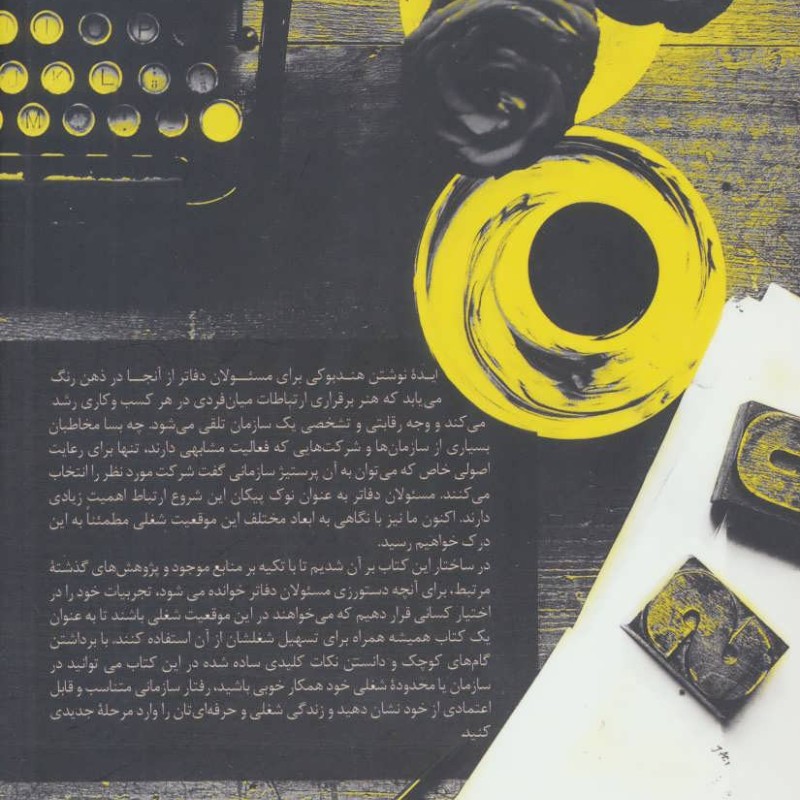 T O P
J K L ة
M
ایدهٔ نوشتن هندبوکی برای مسئولان دفاتر از آنجا در ذهن رنگ
می‌یابد که هنر برقراری ارتباطات میان‌فردی در هر کسب وکاری رشد
می‌کند و وجه رقابتی و تشخصی یک سازمان تلقی می‌شود. چه بسا مخاطبان
بسیاری از سازمان‌ها و شرکت‌هایی که فعالیت مشابهی دارند، تنها برای رعایت
اصولی خاص که می‌توان به آن پرستیژ سازمانی گفت شرکت مورد نظر را انتخاب
می‌کنند. مسئولان دفاتر به عنوان نوک پیکان این شروع ارتباط اهمیت زیادی
دارند. اکنون ما نیز با نگاهی به ابعاد مختلف این موقعیت شغلی مطمئناً به این
درک خواهیم رسید.
در ساختار این کتاب بر آن شدیم تا با تکیه بر منابع موجود و پژوهش‌های گذشتهٔ
مرتبط، برای آنچه دستورزی مسئولان دفاتر خوانده می شود، تجربیات خود را در
اختیار کسانی قرار دهیم که می‌خواهند در این موقعیت شغلی باشند تا به عنوان
یک کتاب همیشه همراه برای تسهیل شغلشان از آن استفاده کنند. با برداشتن
گام‌های کوچک و دانستن نکات کلیدی ساده شده در این کتاب می توانید در
سازمان یا محدودهٔ شغلی خود همکار خوبی باشید، رفتار سازمانی متناسب و قابل
اعتمادی از خود نشان دهید و زندگی شغلی و حرفه‌ای‌تان را وارد مرحلهٔ جدیدی
کنید.